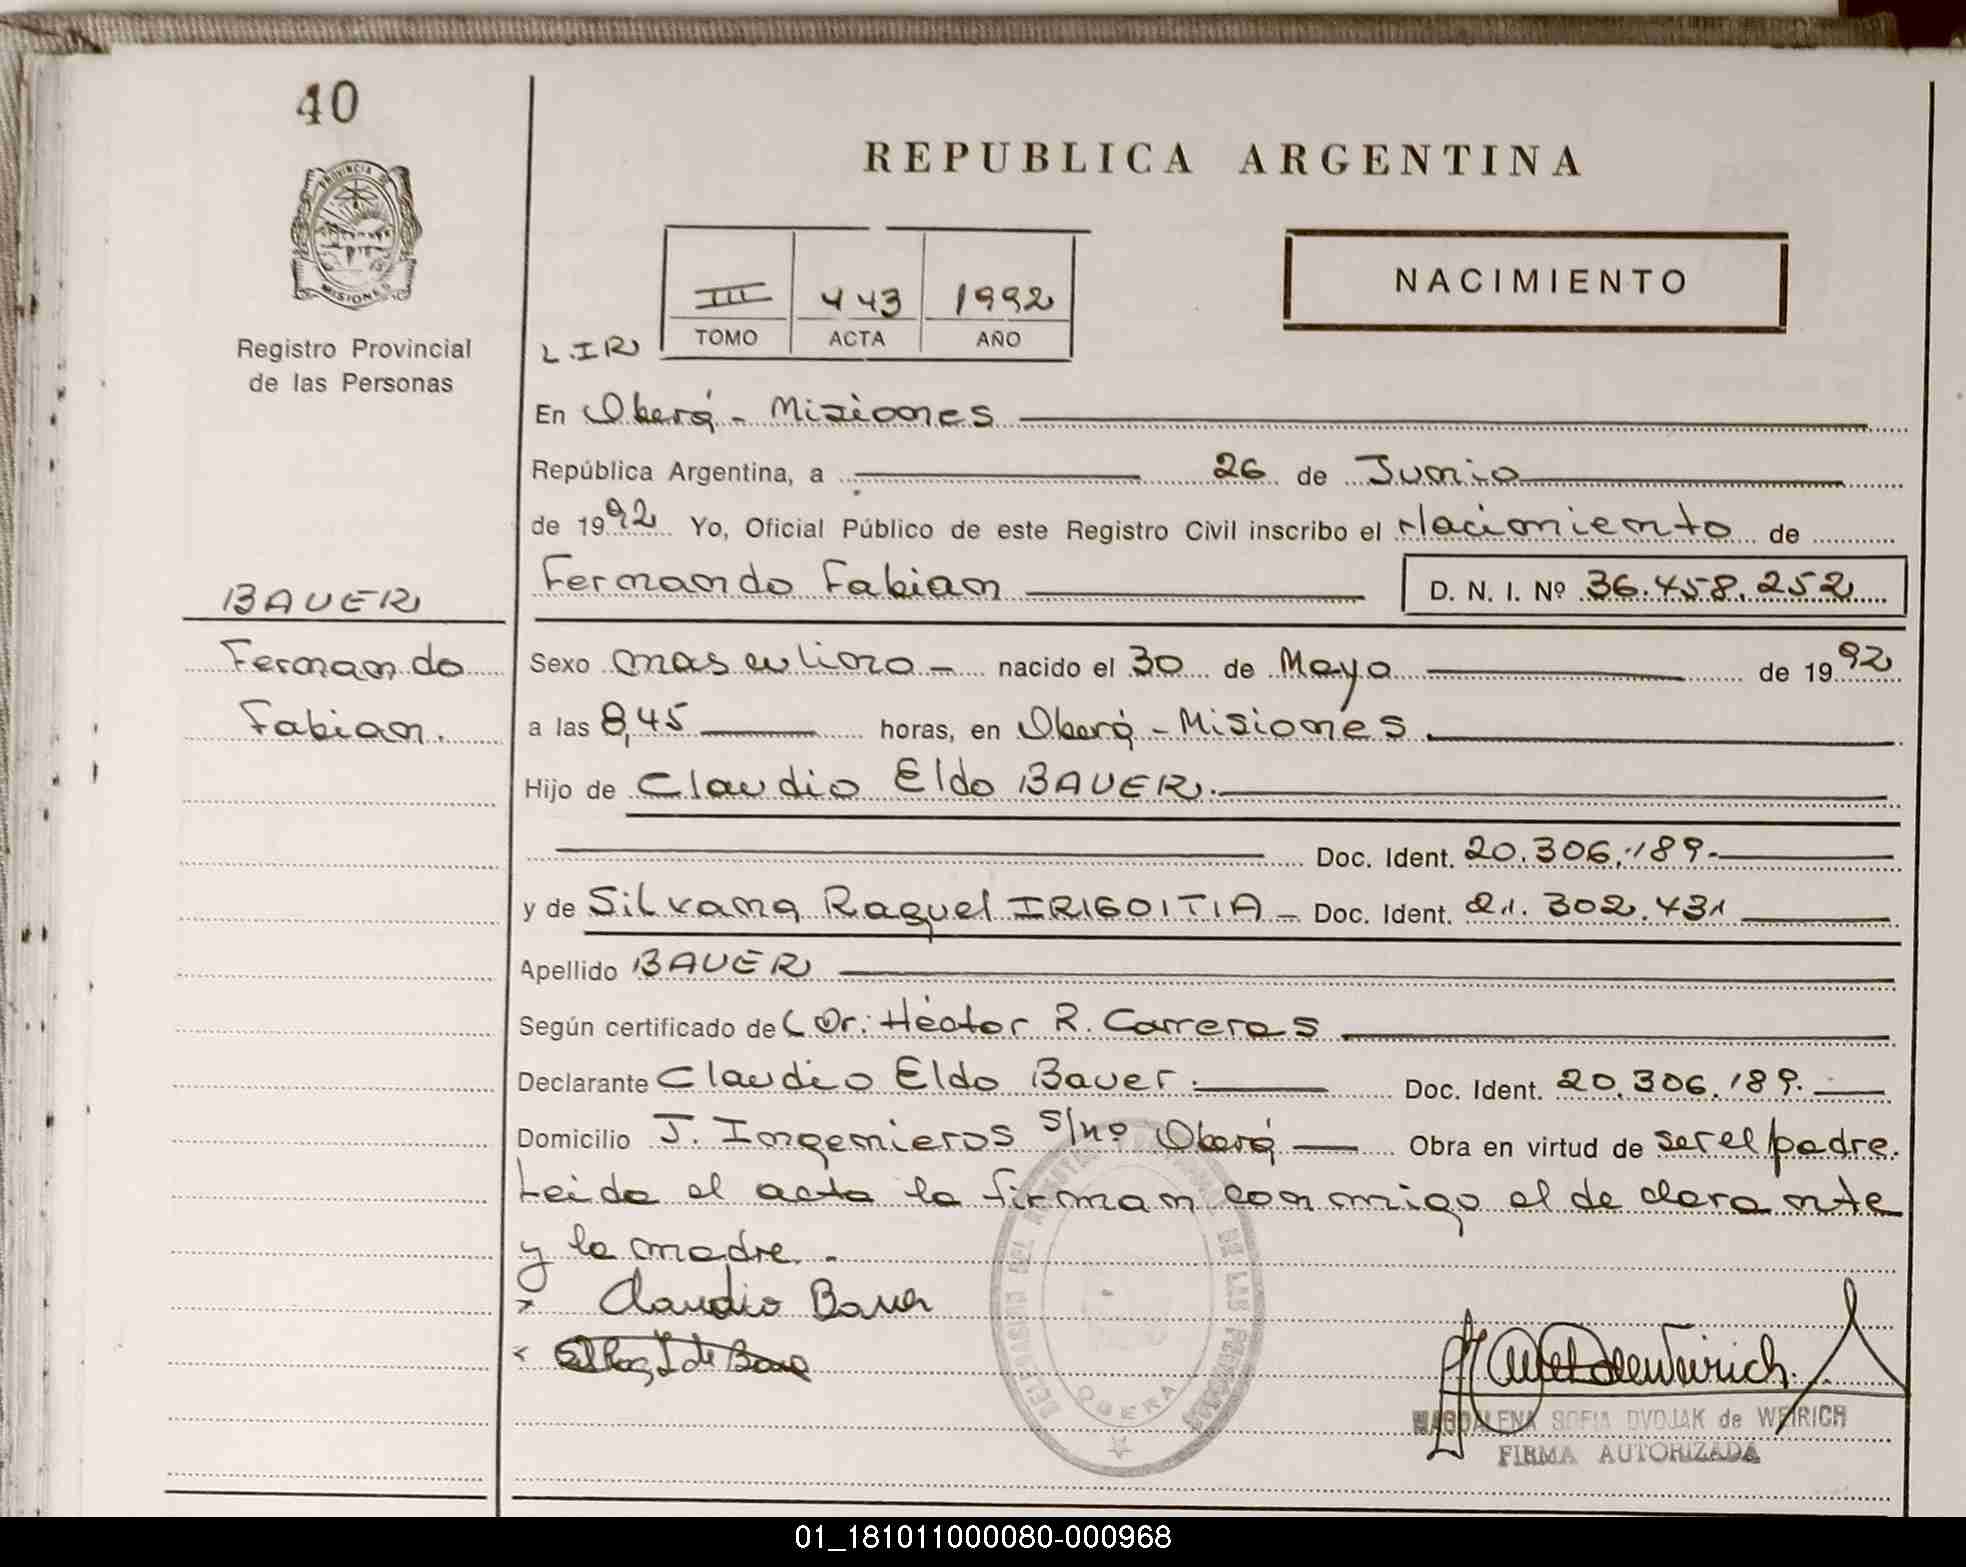 40
REPUBLICA ARGENTINA
PROVINCIA DE
MISIONES
NACIMIENTO
III 443 1992
TOMO ACTA AÑO
L.IR
Registro Provincial
de las Personas
En Oberá - Misiones
República Argentina, a 26 de Junio
de 1992 Yo, Oficial Público de este Registro Civil inscribo el Nacimiento de
Fernando Fabian D. N. I. Nº 36.458.252
BAUER
Fernando
Fabian.
Sexo masculino - nacido el 30 de Mayo de 1992
a las 8,45 horas, en Oberá - Misiones
Hijo de Claudio Eldo BAUER.
Doc. Ident. 20.306.189-
y de Silvana Raquel IRIGOITIA - Doc. Ident. 21.302.431
Apellido BAUER
Según certificado de Dr: Héctor R. Carreras
Declarante Claudio Eldo Bauer. Doc. Ident. 20.306.189.
Domicilio J. Ingenieros s/nº Oberá Obra en virtud de ser el padre.
Leida el acta la firman conmigo el declarante
y la madre.-
Claudio Bauer
DE LAS PERSONAS
OBERA
MAGDALENA SOFIA DVOJAK de WEIRICH
FIRMA AUTORIZADA
01_181011000080-000968